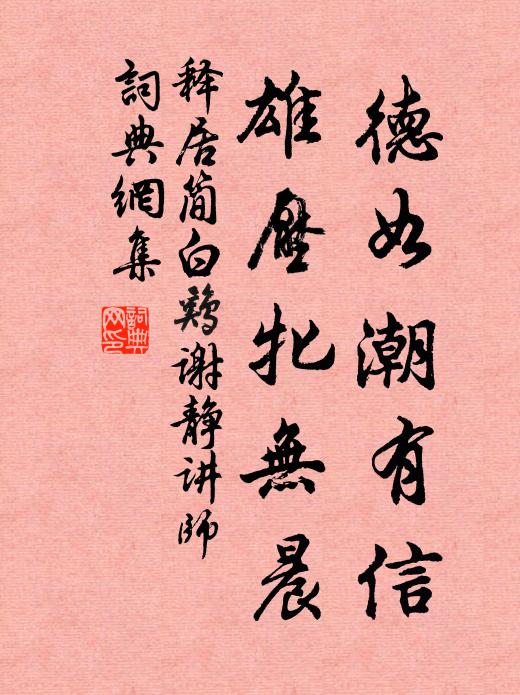 德如潮有信
雄壓牝無晨
释居简白鷄谢静讲师
詞典網集
詞典網印